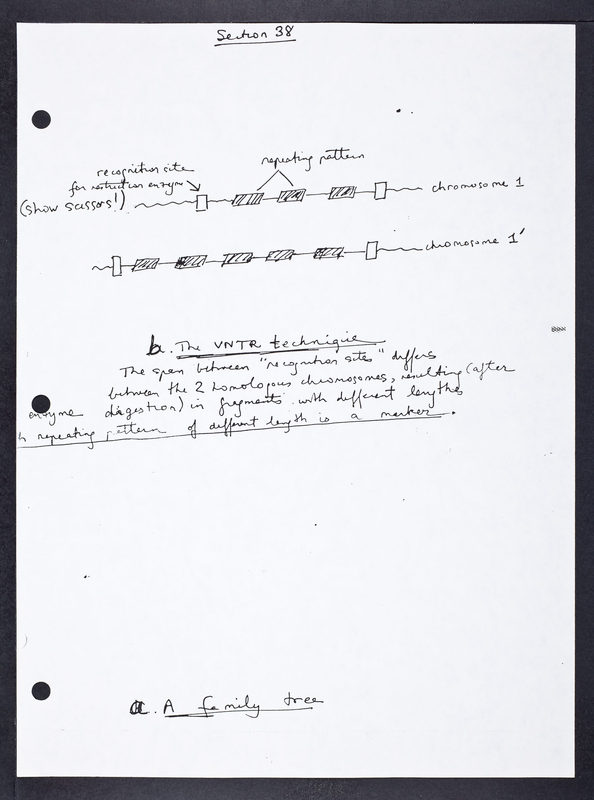 Section 38
repeating pattern
recognition site
for restriction enzyme
(show scissors!)
chromosome 1
chromosome 1'
b. The VNTR technique
The span between "recognition sites" differs
between the 2 homologous chromosomes, resulting (after
enzyme digestion) in fragments with different lengths
repeating pattern of different length is a marker.
a. A family tree